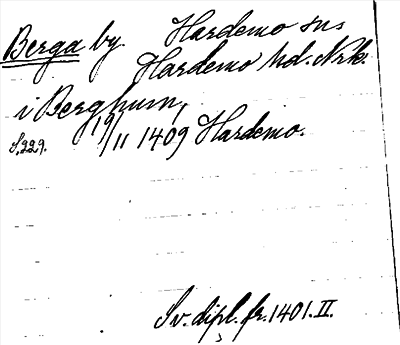 Berga by Hardemo sn.
Hardemo hd. Nrk.
i Berghum,
S. 229. 19/11 1409 Hardemo.
Sv. dipl. fr. 1401. II.